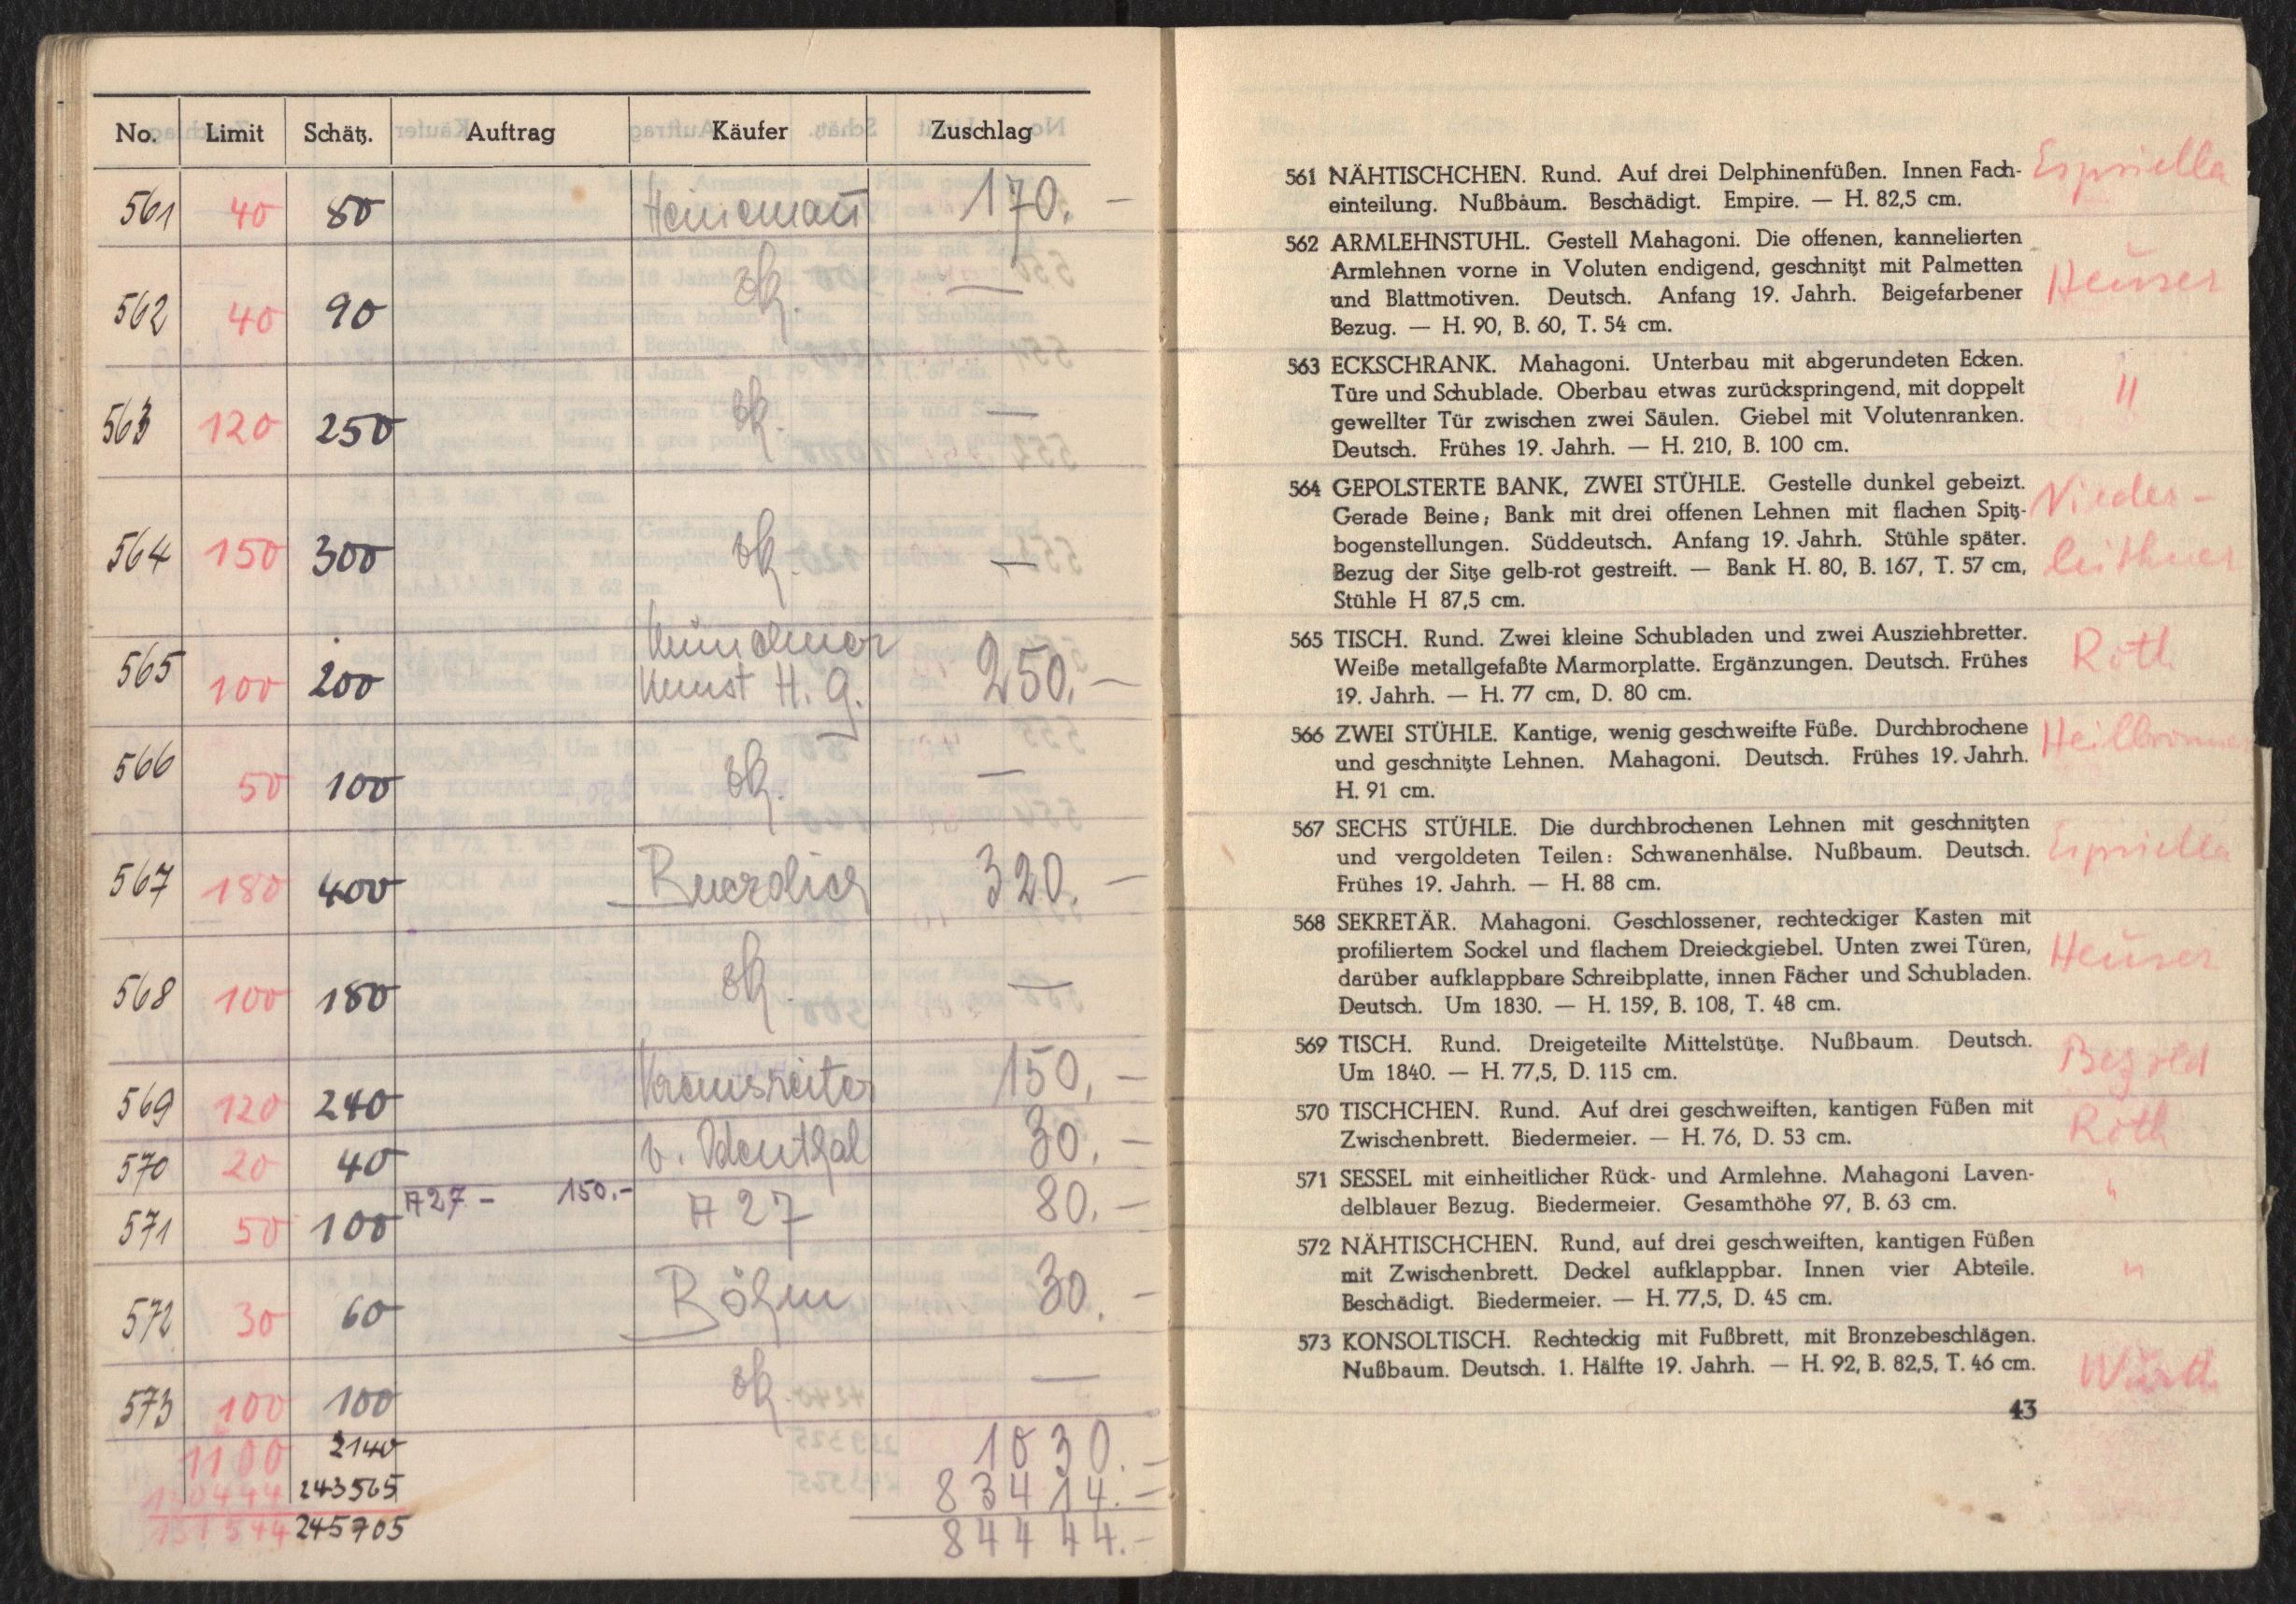 No. Limit Schätz. Auftrag Käufer Zuschlag
561 40 80 170.-
562 40 90
563 120 250 —
564 150 300 —
565 100 200 Kunst H. G. 250.-
566 50 100 —
567 180 400 320.-
568 100 180 —
569 120 240 150.-
570 20 40 30.-
571 50 100 A 27 - 150.- A 27 80.-
572 30 60 Böhm 30.-
573 100 100 —
1100 2140 1030.-
130444 243565 83414.-
131544 245705 84444.-
561 NÄHTISCHCHEN. Rund. Auf drei Delphinenfüßen. Innen Fach- Espriella
einteilung. Nußbaum. Beschädigt. Empire. — H. 82,5 cm.
562 ARMLEHNSTUHL. Gestell Mahagoni. Die offenen, kannelierten
Armlehnen vorne in Voluten endigend, geschnitzt mit Palmetten Heuser
und Blattmotiven. Deutsch. Anfang 19. Jahrh. Beigefarbener
Bezug. — H. 90, B. 60, T. 54 cm.
563 ECKSCHRANK. Mahagoni. Unterbau mit abgerundeten Ecken.
Türe und Schublade. Oberbau etwas zurückspringend, mit doppelt "
gewellter Tür zwischen zwei Säulen. Giebel mit Volutenranken.
Deutsch. Frühes 19. Jahrh. — H. 210, B. 100 cm.
564 GEPOLSTERTE BANK, ZWEI STÜHLE. Gestelle dunkel gebeizt. Nieder-
Gerade Beine; Bank mit drei offenen Lehnen mit flachen Spitz-
bogenstellungen. Süddeutsch. Anfang 19. Jahrh. Stühle später. leithner
Bezug der Sitze gelb-rot gestreift. — Bank H. 80, B. 167, T. 57 cm,
Stühle H 87,5 cm.
565 TISCH. Rund. Zwei kleine Schubladen und zwei Ausziehbretter. Roth
Weiße metallgefaßte Marmorplatte. Ergänzungen. Deutsch. Frühes
19. Jahrh. — H. 77 cm, D. 80 cm.
566 ZWEI STÜHLE. Kantige, wenig geschweifte Füße. Durchbrochene Heilbronner
und geschnitzte Lehnen. Mahagoni. Deutsch. Frühes 19. Jahrh.
H. 91 cm.
567 SECHS STÜHLE. Die durchbrochenen Lehnen mit geschnitzten Espriella
und vergoldeten Teilen: Schwanenhälse. Nußbaum. Deutsch.
Frühes 19. Jahrh. — H. 88 cm.
568 SEKRETÄR. Mahagoni. Geschlossener, rechteckiger Kasten mit
profiliertem Sockel und flachem Dreieckgiebel. Unten zwei Türen, Heuser
darüber aufklappbare Schreibplatte, innen Fächer und Schubladen.
Deutsch. Um 1830. — H. 159, B. 108, T. 48 cm.
569 TISCH. Rund. Dreigeteilte Mittelstütze. Nußbaum. Deutsch. Bezold
Um 1840. — H. 77,5, D. 115 cm.
570 TISCHCHEN. Rund. Auf drei geschweiften, kantigen Füßen mit Roth
Zwischenbrett. Biedermeier. — H. 76, D. 53 cm.
571 SESSEL mit einheitlicher Rück- und Armlehne. Mahagoni Laven- "
delblauer Bezug. Biedermeier. Gesamthöhe 97, B. 63 cm.
572 NÄHTISCHCHEN. Rund, auf drei geschweiften, kantigen Füßen
mit Zwischenbrett. Deckel aufklappbar. Innen vier Abteile. "
Beschädigt. Biedermeier. — H. 77,5, D. 45 cm.
573 KONSOLTISCH. Rechteckig mit Fußbrett, mit Bronzebeschlägen.
Nußbaum. Deutsch. 1. Hälfte 19. Jahrh. — H. 92, B. 82,5, T. 46 cm.
43